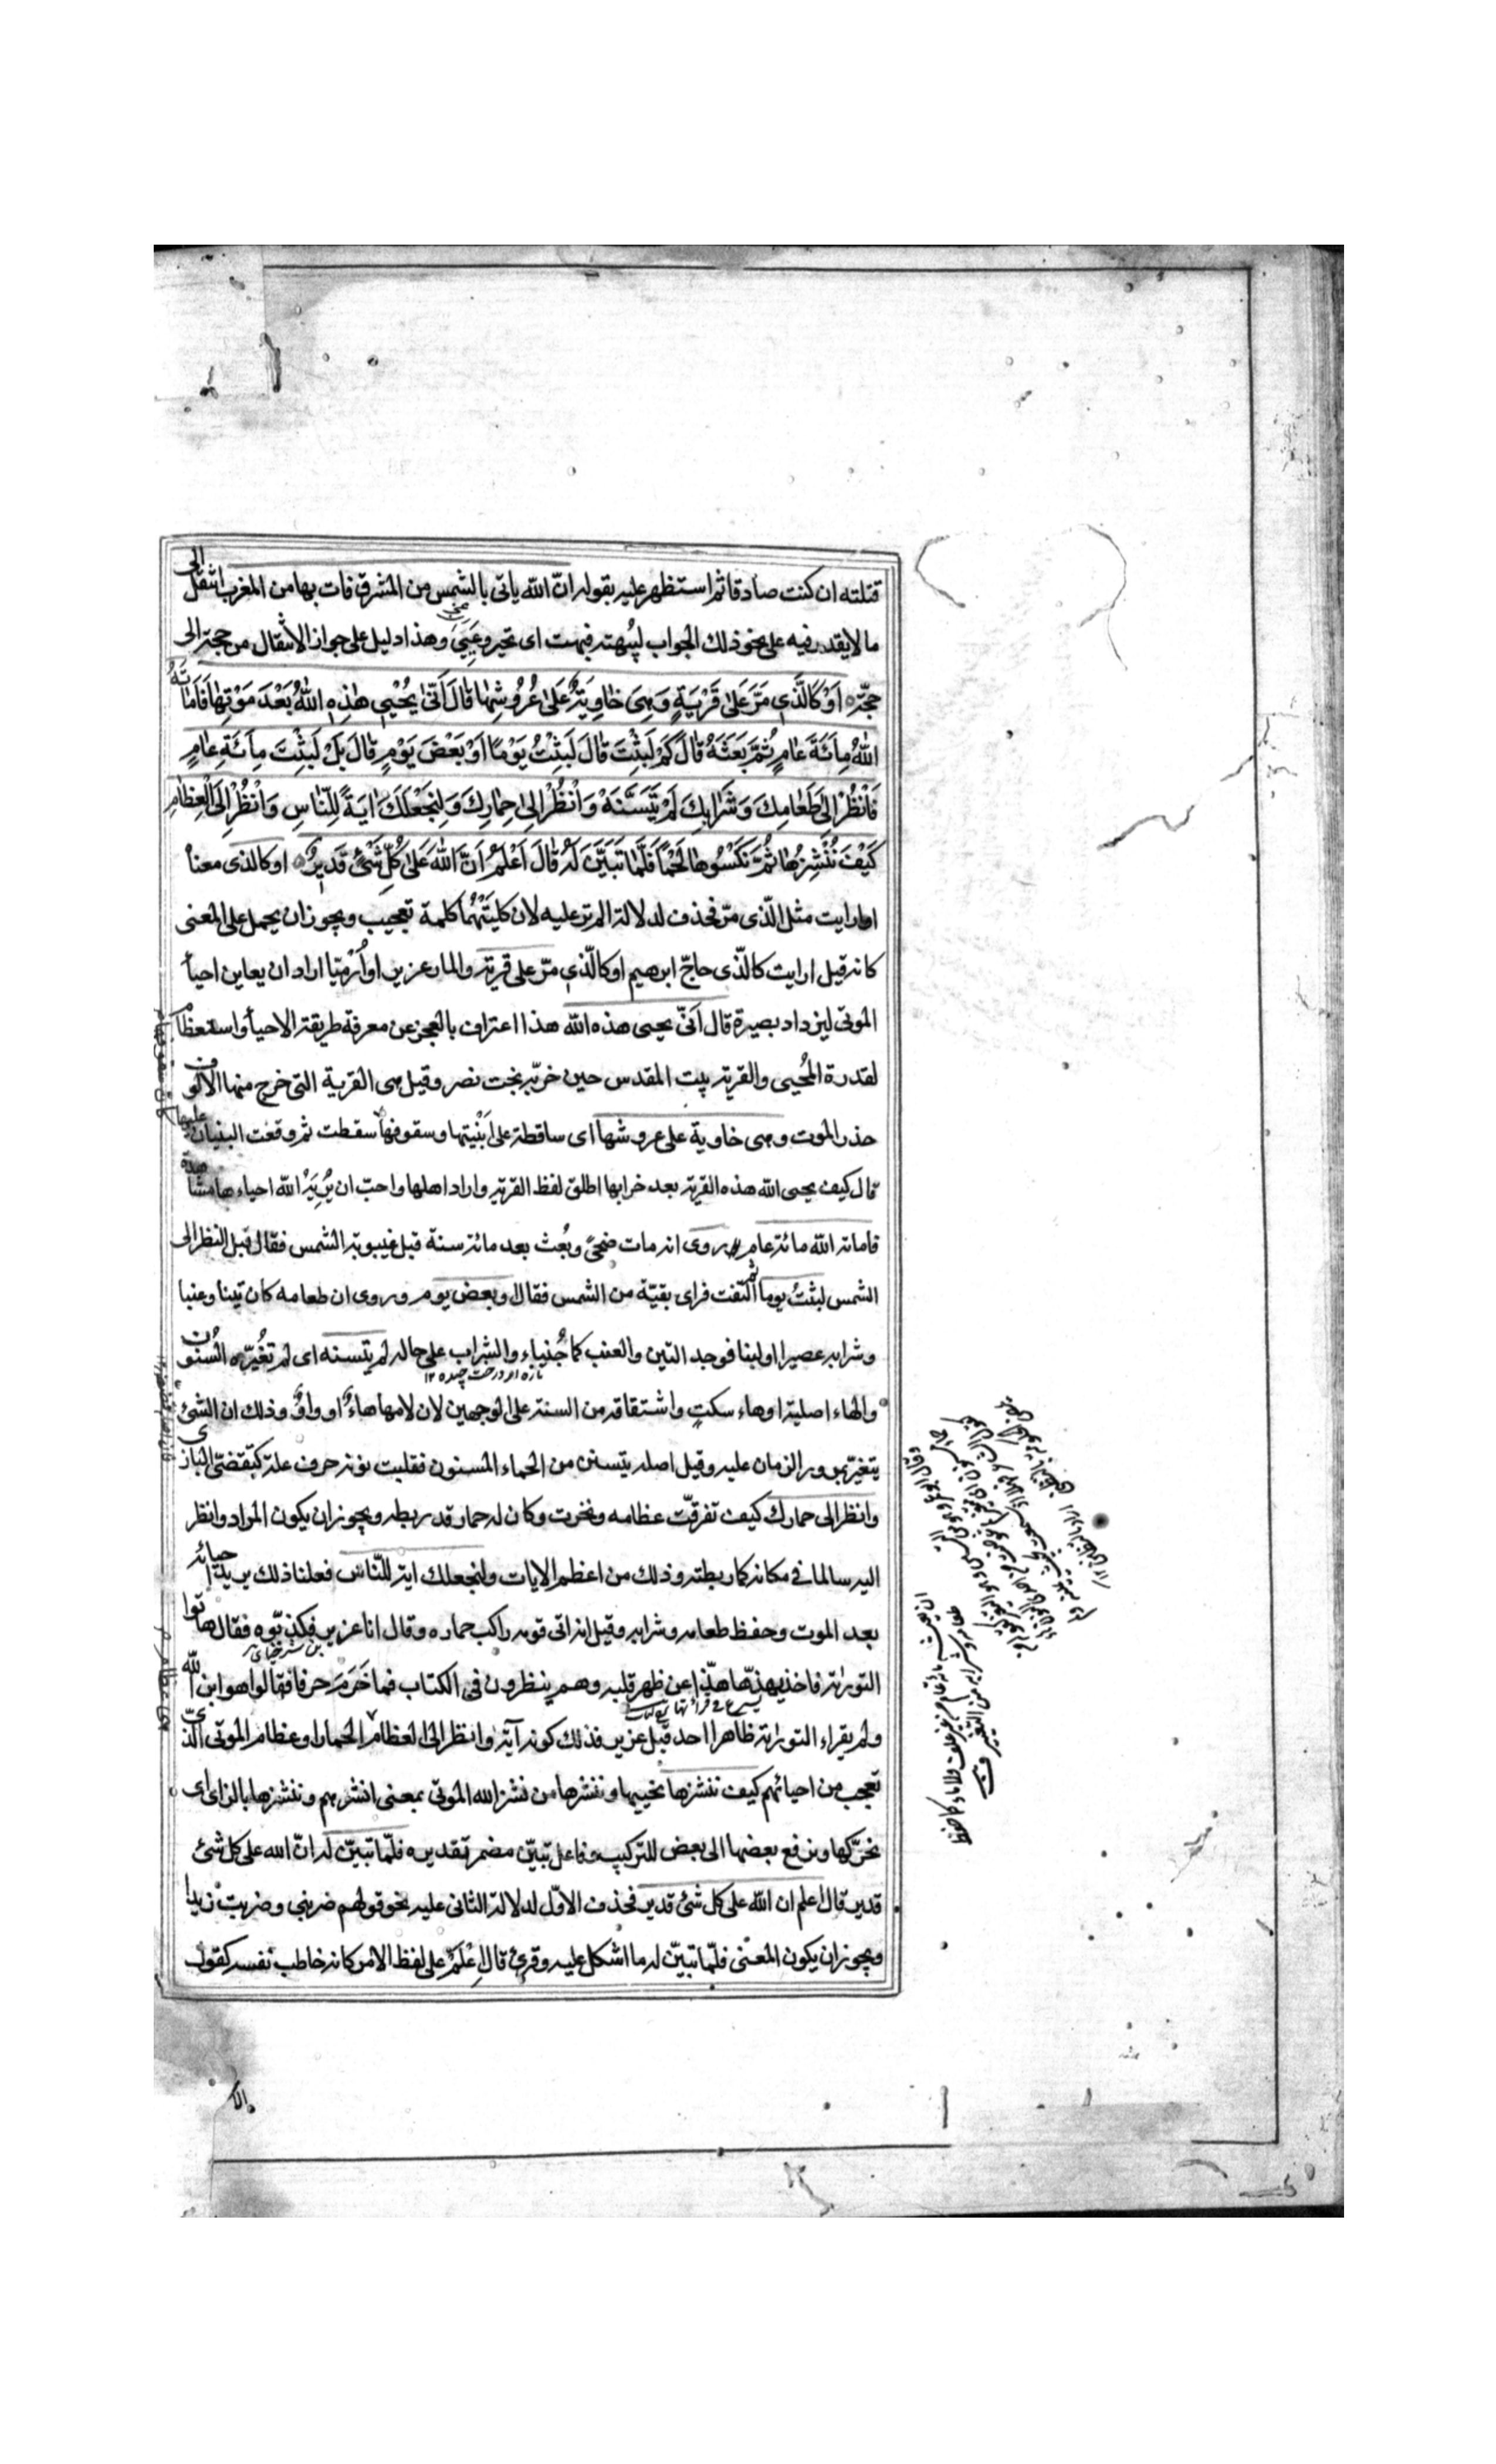 قتلته ان كنت صادقا ثم استظهر عليه بقوله ان الله ياتى بالشمس من المشرق فات بها من المغرب انتقل الى
ما لا يقدر فيه على نحو ذلك الجواب ليبهته فبهت اى تحير وعيي وهذا دليل على جواز الانتقال من حجة الى
حجة اَوْ كَالَّذِى مَرَّ عَلىٰ قَرْيَةٍ وَهِىَ خَاوِيَةٌ عَلىٰ عُرُوشِهَا قَالَ اَنّٰى يُحْيِى هٰذِهِ اللهُ بَعْدَ مَوْتِهَا فَاَمَاتَهُ
اللهُ مِائَةَ عَامٍ ثُمَّ بَعَثَهُ قَالَ كَمْ لَبِثْتَ قَالَ لَبِثْتُ يَوْمًا اَوْ بَعْضَ يَوْمٍ قَالَ بَلْ لَبِثْتَ مِائَةَ عَامٍ
فَانْظُرْ اِلىٰ طَعَامِكَ وَشَرَابِكَ لَمْ يَتَسَنَّهْ وَانْظُرْ اِلىٰ حِمَارِكَ وَلِنَجْعَلَكَ اٰيَةً لِلنَّاسِ وَانْظُرْ اِلَى الْعِظَامِ
كَيْفَ نُنْشِزُهَا ثُمَّ نَكْسُوهَا لَحْمًا فَلَمَّا تَبَيَّنَ لَهُ قَالَ اَعْلَمُ اَنَّ اللهَ عَلىٰ كُلِّ شَىْءٍ قَدِيرٌ او كالذى معناه
او ارايت مثل الّذى مرّ فحذف لدلالة الم تر عليه لان كليتهما كلمة تعجيب ويجوز ان يحمل على المعنى
كانه قيل ارايت كالّذى حاجّ ابرهيم او كالّذى مرّ على قرية والمار عزير او اُرْمِيَا اراد ان يعاين احياء
الموتى ليزداد بصيرة قال اَنّى يحيى هذه الله هذا اعتراف بالعجز عن معرفة طريقة الاحياء واستعظام
لقدرة المُحيى والقرية بيت المقدس حين خرّبه بخت نصر وقيل هى القرية التى خرج منها الالوف
حذر الموت وهى خاوية على عروشها اى ساقطة على اَبْنيتها وسقوفها سقطت ثم وقعت البنيان عليها
قال كيف يحيى الله هذه القرية بعد خرابها اطلق لفظ القرية واراد اهلها واحبّ ان يُرِيَهُ الله احياءها مشاهدة
فاماته الله مائة عام روى انه مات ضحىً وبُعث بعد مائة سنة قبل غيبوبة الشمس فقال قبل النظر الى
الشمس لبثتُ يوما ثم التفت فراى بقيّة من الشمس فقال او بعض يوم وروى ان طعامه كان تينا وعنبا
وشرابه عصيرا او لبنا فوجد التين والعنب كما جُنياء والشراب على حاله لم يتسنه اى لم تغيّره السنون
تازه از درخت چيده ١٢
والهاء اصلية او هاء سكتٍ واشتقاقه من السنة على الوجهين لان لامها هاءٌ او واوٌ وذلك ان الشئ
يتغير بمرور الزمان عليه وقيل اصله يتسنن من الحماء المسنون فقلبت نونه حرف علة كتقضّى البازى
وانظر الى حمارك كيف تفرقت عظامه ونخرت وكان له حمار قد ربطه ويجوز ان يكون المراد وانظر
اليه سالما فى مكانه كما ربطته وذلك من اعظم الايات ولنجعلك اية للنّاس فعلنا ذلك يريد احيائه
بعد الموت وحفظ طعامه وشرابه وقيل انه اتى قومه راكب حماره وقال انا عزير فكذّبوه فقال هاتوا
التورٰية فاخذ يهذّها هذّا عن ظهر قلبه وهم ينظرون فى الكتاب فما خَرَمَ حرفا فقالوا هو ابن الله
ولم يقراء التورٰية ظاهرا احد قبل عزير فذلك كونه آية وانظر الى العظام الحمار او عظام الموتى الذى
تعجب من احيائهم كيف ننشزها نحييها وننشرها من نشز الله الموتى بمعنى انشرهم وننشزها بالزاى اى
نحرّكها ونرفع بعضها الى بعض للتركيب وفاعل تبيّن مضمر تقديره فلمّا تبيّن له انّ الله على كل شئ
قدير قال اعلم ان الله على كل شئ قدير فحذف الاوّل لدلالة الثانى عليه نحو قولهم ضربنى وضربت زيدا
ويجوز ان يكون المعنى فلمّا تبيّن له ما اشكل عليه وقرئ قال اِعْلَمْ على لفظ الامر كانه خاطب نفسه كقول